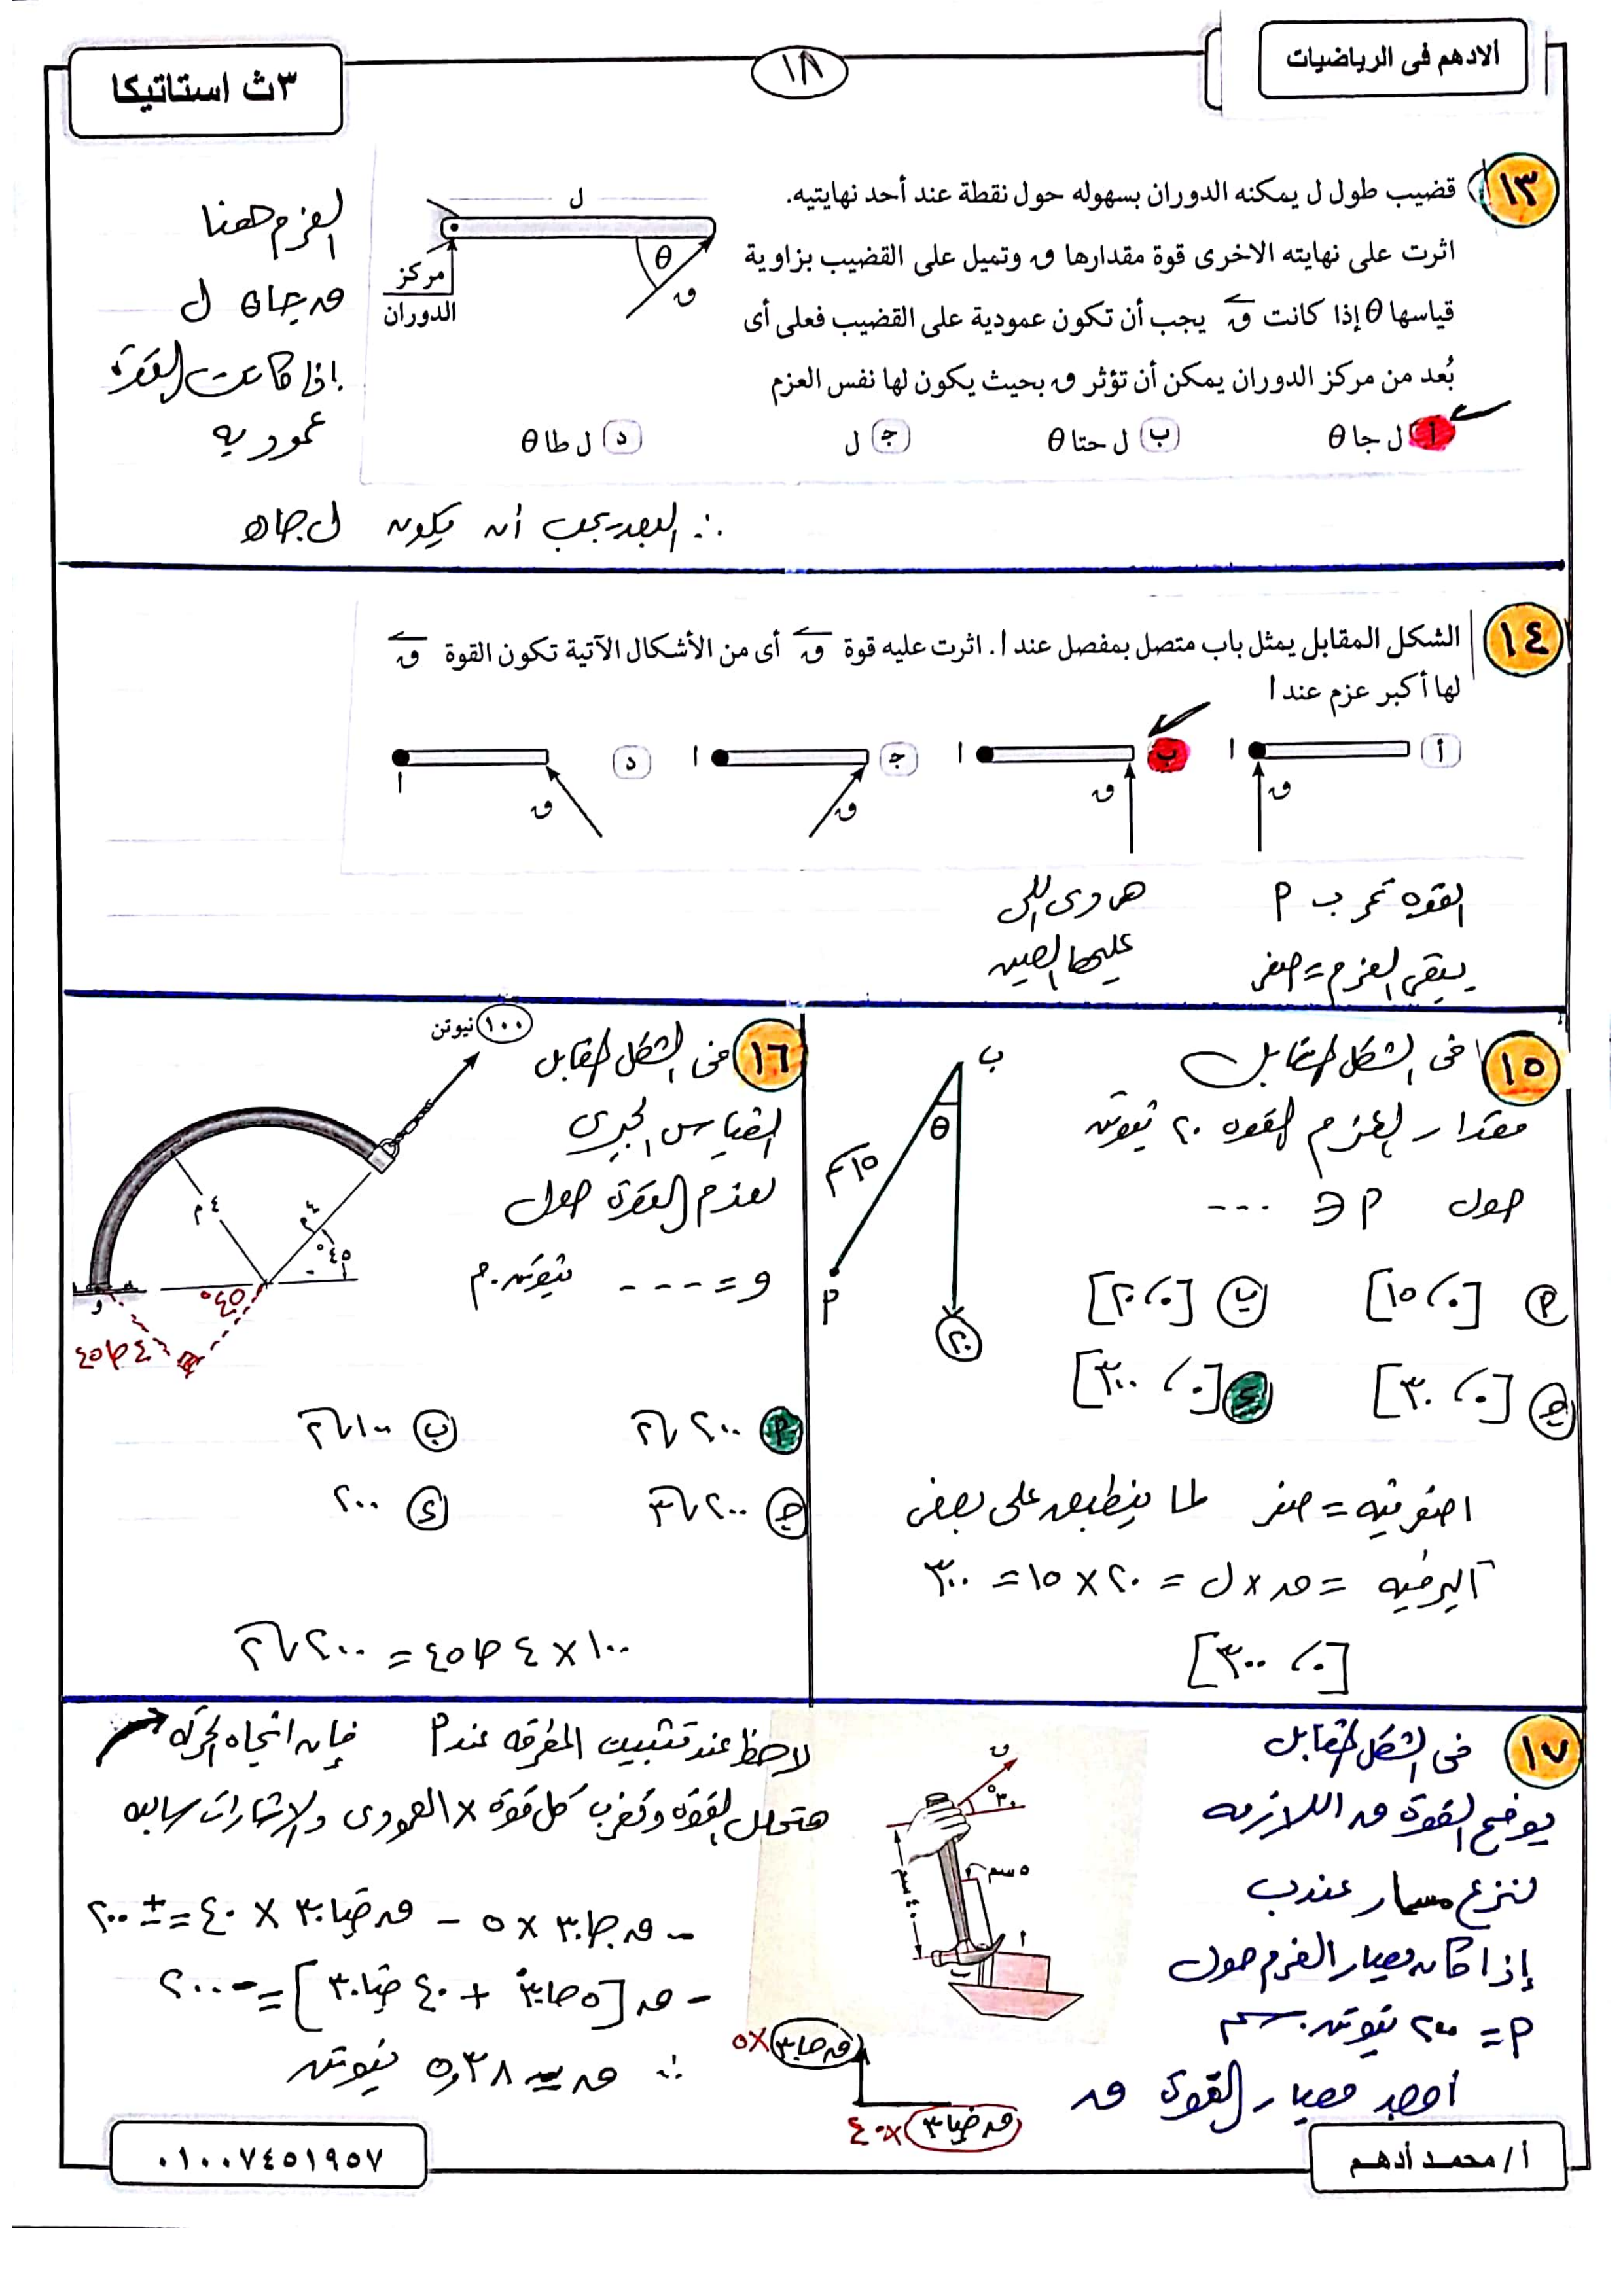 الادهم فى الرياضيات
١٨
٣ث استاتيكا
١٣
قضيب طول ل يمكنه الدوران بسهوله حول نقطة عند أحد نهايتيه.
اثرت على نهايته الاخرى قوة مقدارها ق وتميل على القضيب بزاوية
قياسها θ إذا كانت ق يجب أن تكون عمودية على القضيب فعلى أى
بُعد من مركز الدوران يمكن أن تؤثر ق بحيث يكون لها نفس العزم
أ ل جا θ
ب ل حتا θ
ج ل
د ل طا θ
ل
θ
ق
مركز
الدوران
العزم هنا
ق جا θ ل
إذا كانت القوة
عموديه
∴ البعد يجب أن يكون ل جا θ
١٤
الشكل المقابل يمثل باب متصل بمفصل عند ا. اثرت عليه قوة ق أى من الأشكال الآتية تكون القوة ق
لها أكبر عزم عند ا
أ ا ق
ب ا ق
ج ا ق
د ا ق
القوه تمر ب م
يبقى العزم = صفر
هى دى اللى
عليها العين
١٥
فى الشكل المقابل
مقدار العزم القوه ٢٠ نيوتن
حول م ∋ ---
م [٠، ١٥]
ب [٠، ٢٠]
ج [٠، ٣٠]
د [٠، ٣٠٠]
ب
θ
١٥م
م
٢٠
اصغر قيه = صفر لما ينطبق على بعض
أكبر قيه = ق × ل = ٢٠ × ١٥ = ٣٠٠
[٠، ٣٠٠]
١٦
فى الشكل المقابل
القياس الجبرى
لعزم القوة حول
و = ---- نيوتن.م
١٠٠ نيوتن
٤م
٤م
٤٥°
٤٥°
و
٤ جا ٤٥
م ٢٠٠ √٢
ب ١٠٠ √٢
ج ٢٠٠ √٣
د ٢٠٠
١٠٠ × ٤ جا ٤٥ = ٢٠٠ √٢
١٧
فى الشكل المقابل
يوضح القوة ق اللازمه
لنزع مسمار عند ب
إذا كان معيار العزم حول
م = ٢٠٠ نيوتن.سم
أوجد معيار القوة ق
ق
٣٠°
٥ سم
٤٠ سم
ا
ب
لاحظ عند تثبيت المطرقه عند م فإن اتجاه الحركه
هتحلل القوه وتضرب كل قوة × العمودى والإشارات سالبه
- ق جا ٣٠ × ٥ - ق جتا ٣٠ × ٤٠ = ± ٢٠٠
- ق [٥ جا ٣٠ + ٤٠ جتا ٣٠] = - ٢٠٠
∴ ق = ٥,٣٨ نيوتن
ق جا ٣٠ × ٥
ق جتا ٣٠ × ٤٠
أ/ محمد أدهم
٠١٠٠٧٤٥١٩٥٧